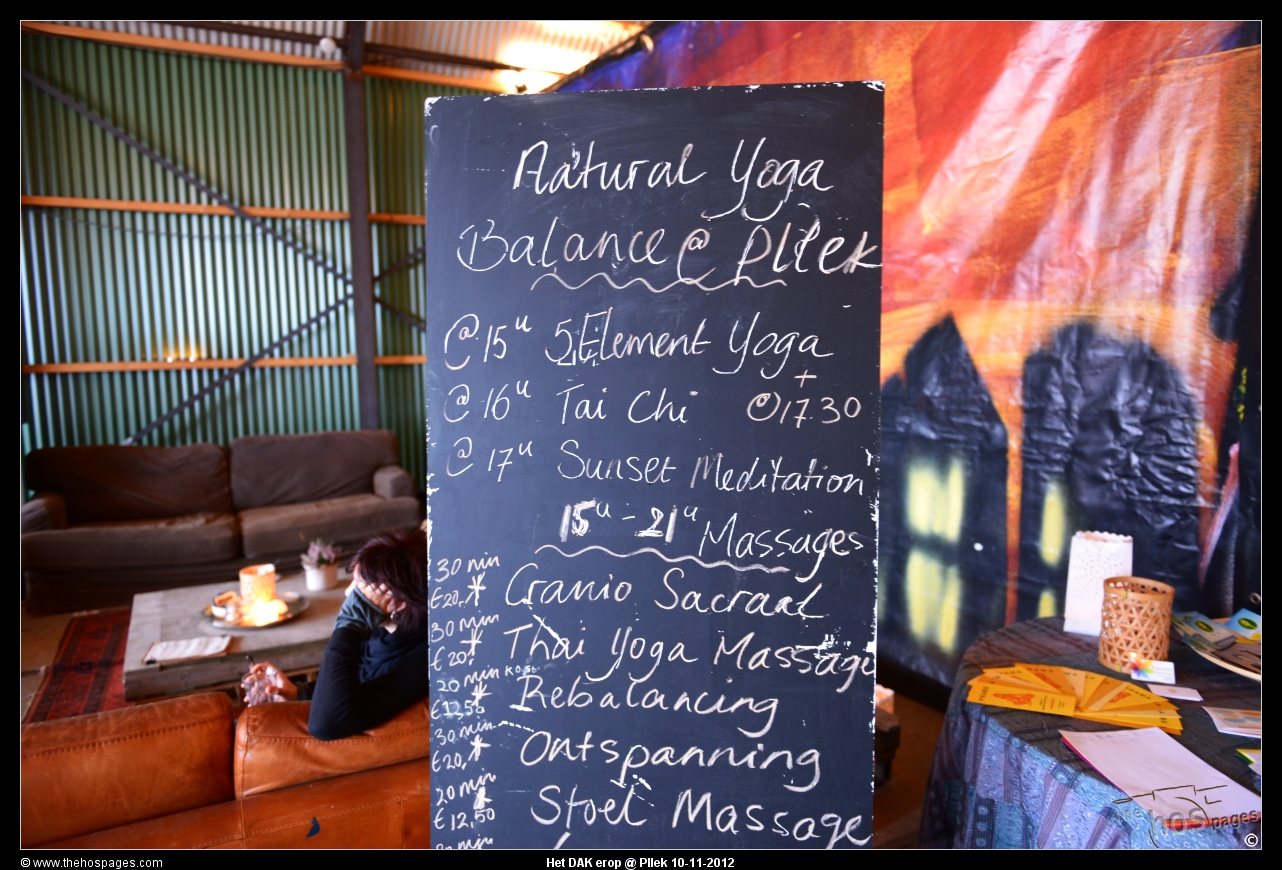 Natural Yoga
Balance @ Pllek
@ 15u 5 Element Yoga
+
@ 16u Tai Chi @17.30
@ 17u Sunset Meditation
15u - 21u Massages
30 min
€20,- * Cranio Sacraal
30 min
€20,- * Thai Yoga Massage
20 min
€12,50 * Rebalancing
30 min
€20,- * Ontspanning
20 min
€12,50 * Stoel Massage
hos pages
©
© www.thehospages.com
Het DAK erop @ Pllek 10-11-2012